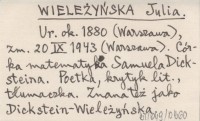 WIELEŻYŃSKA Julia.
Ur. ok. 1880 (Warszawa),
zm. 20 IX 1943 (Warszawa). Cór-
ka matematyka Samuela Dick-
steina. Poetka, krytyk lit.,
tłumaczka. Znana też jako
Dickstein-Wieleżyńska.